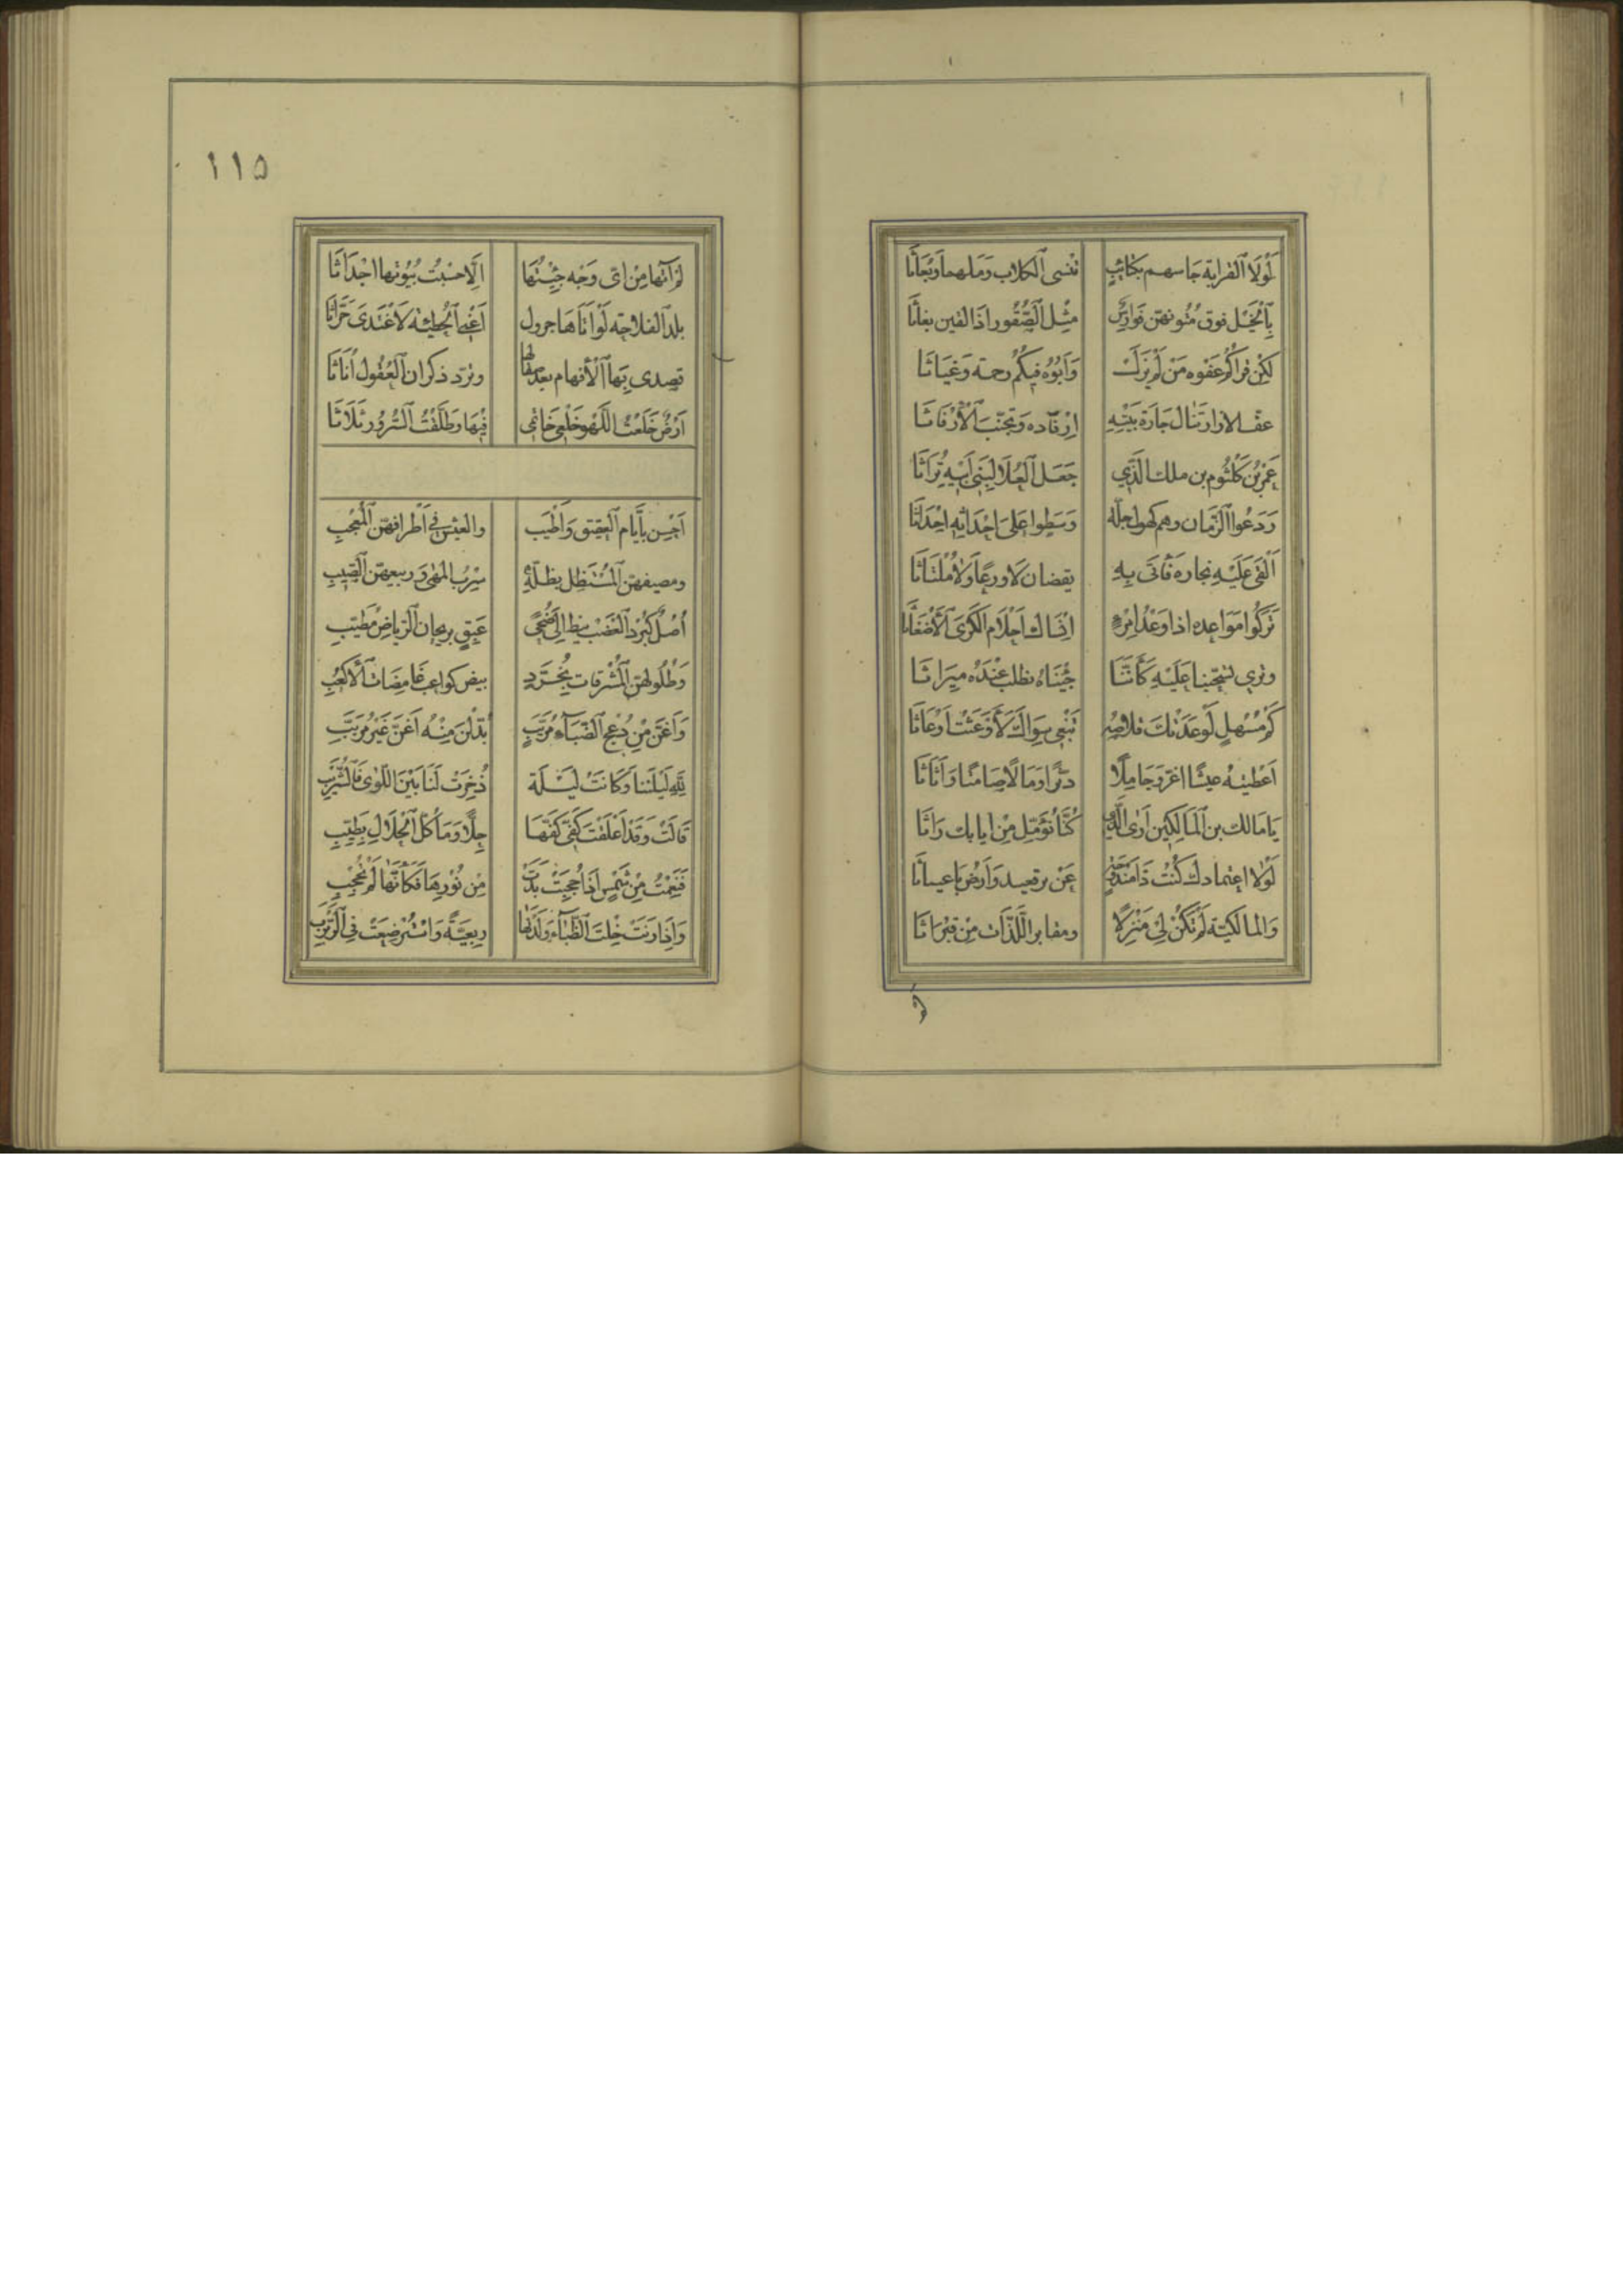 لَوْلَا ٱلقرابة جاسهم بكتائبٍ تنسى ٱلكلاب وملهما وبُعاثا
بٱلخيل فوق مُتونهنّ فوارسٌ مثل ٱلصّقور اذا لقين بغاثا
لكن قراكم عفوه من لم يزل وابوه فيكم رحمة وغياثا
عمرُ بن كلثوم بن ملك الّذي جعل ٱلعُلا لبني ابيه تُراثا
ردعوا ٱلزّمان وهم كهول جلّة وسطوا على احداثه احداثا
ألقى عليه نجاره فأتى به يقضان لا ورعًا ولا مُلتاثا
تركوا مواعده اذا وعدُ امرء انساك احلام الكرى ٱلأضغاثا
وترى تسحّبنا عليه كأنّنا جئناه نطلب عنده ميراثا
كم مُسْهلٍ لو عدتك قلاصه تبغي سواك لأوعثت ايعاثا
يا مالك بن ٱلمالكين ارى الّذي كُنّا نؤمّل من ايابك راثا
لولا اعتمادك كنت ذا مندوحةٍ عن برقعيد وارض باعيناثا
والمالكيّة لم تكن لي منزلًا ومقابر اللّذّات من قبراثا
١١٥
لم آتها من اى وجه جئتها الّا حسبت بُيُوتها اجداثا
بلد ٱلفلاحة لو اتاها جرول اعنى ٱلحطيئه لاغتدى حرّاثا
تصدى بها ٱلأفهام بعد صقالها وترد ذكران ٱلعُقول اناثا
ارضٌ خلعتُ اللّهو خلعى خاتمى فيها وطلّقتُ ٱلسّرور ثلاثا
احسن بأيّام ٱلعقيق واطيب والعيش في اطرافهنّ ٱلمُعجب
ومصيفهنّ ٱلمُستظلّ بظلّه سرب المهى وربيعهنّ ٱلصّيّب
عبقٍ بريحان ٱلرّياض مُطيّب
بيض كواعب غامضات ٱلأكعب
واغنّ من دُعج ٱلظّباء مُربّبٍ بُدّلن منه اغنّ غير مُربّب
للّه ليلتنا وكانت ليلة ذُخرت لنا بين اللّوى فالشّربب
قالت وقد اعلقت كفّى كفّها حلًّا وما كُلّ ٱلحلال بطيّب
فنعمتُ من شمسٍ اذا حُجبت بدت من نورها فكأنّها لم تُحجب
واذا رنت خلت الظّباء ولدنها ربعيّةً واستُرضعت في ٱلرّبرب